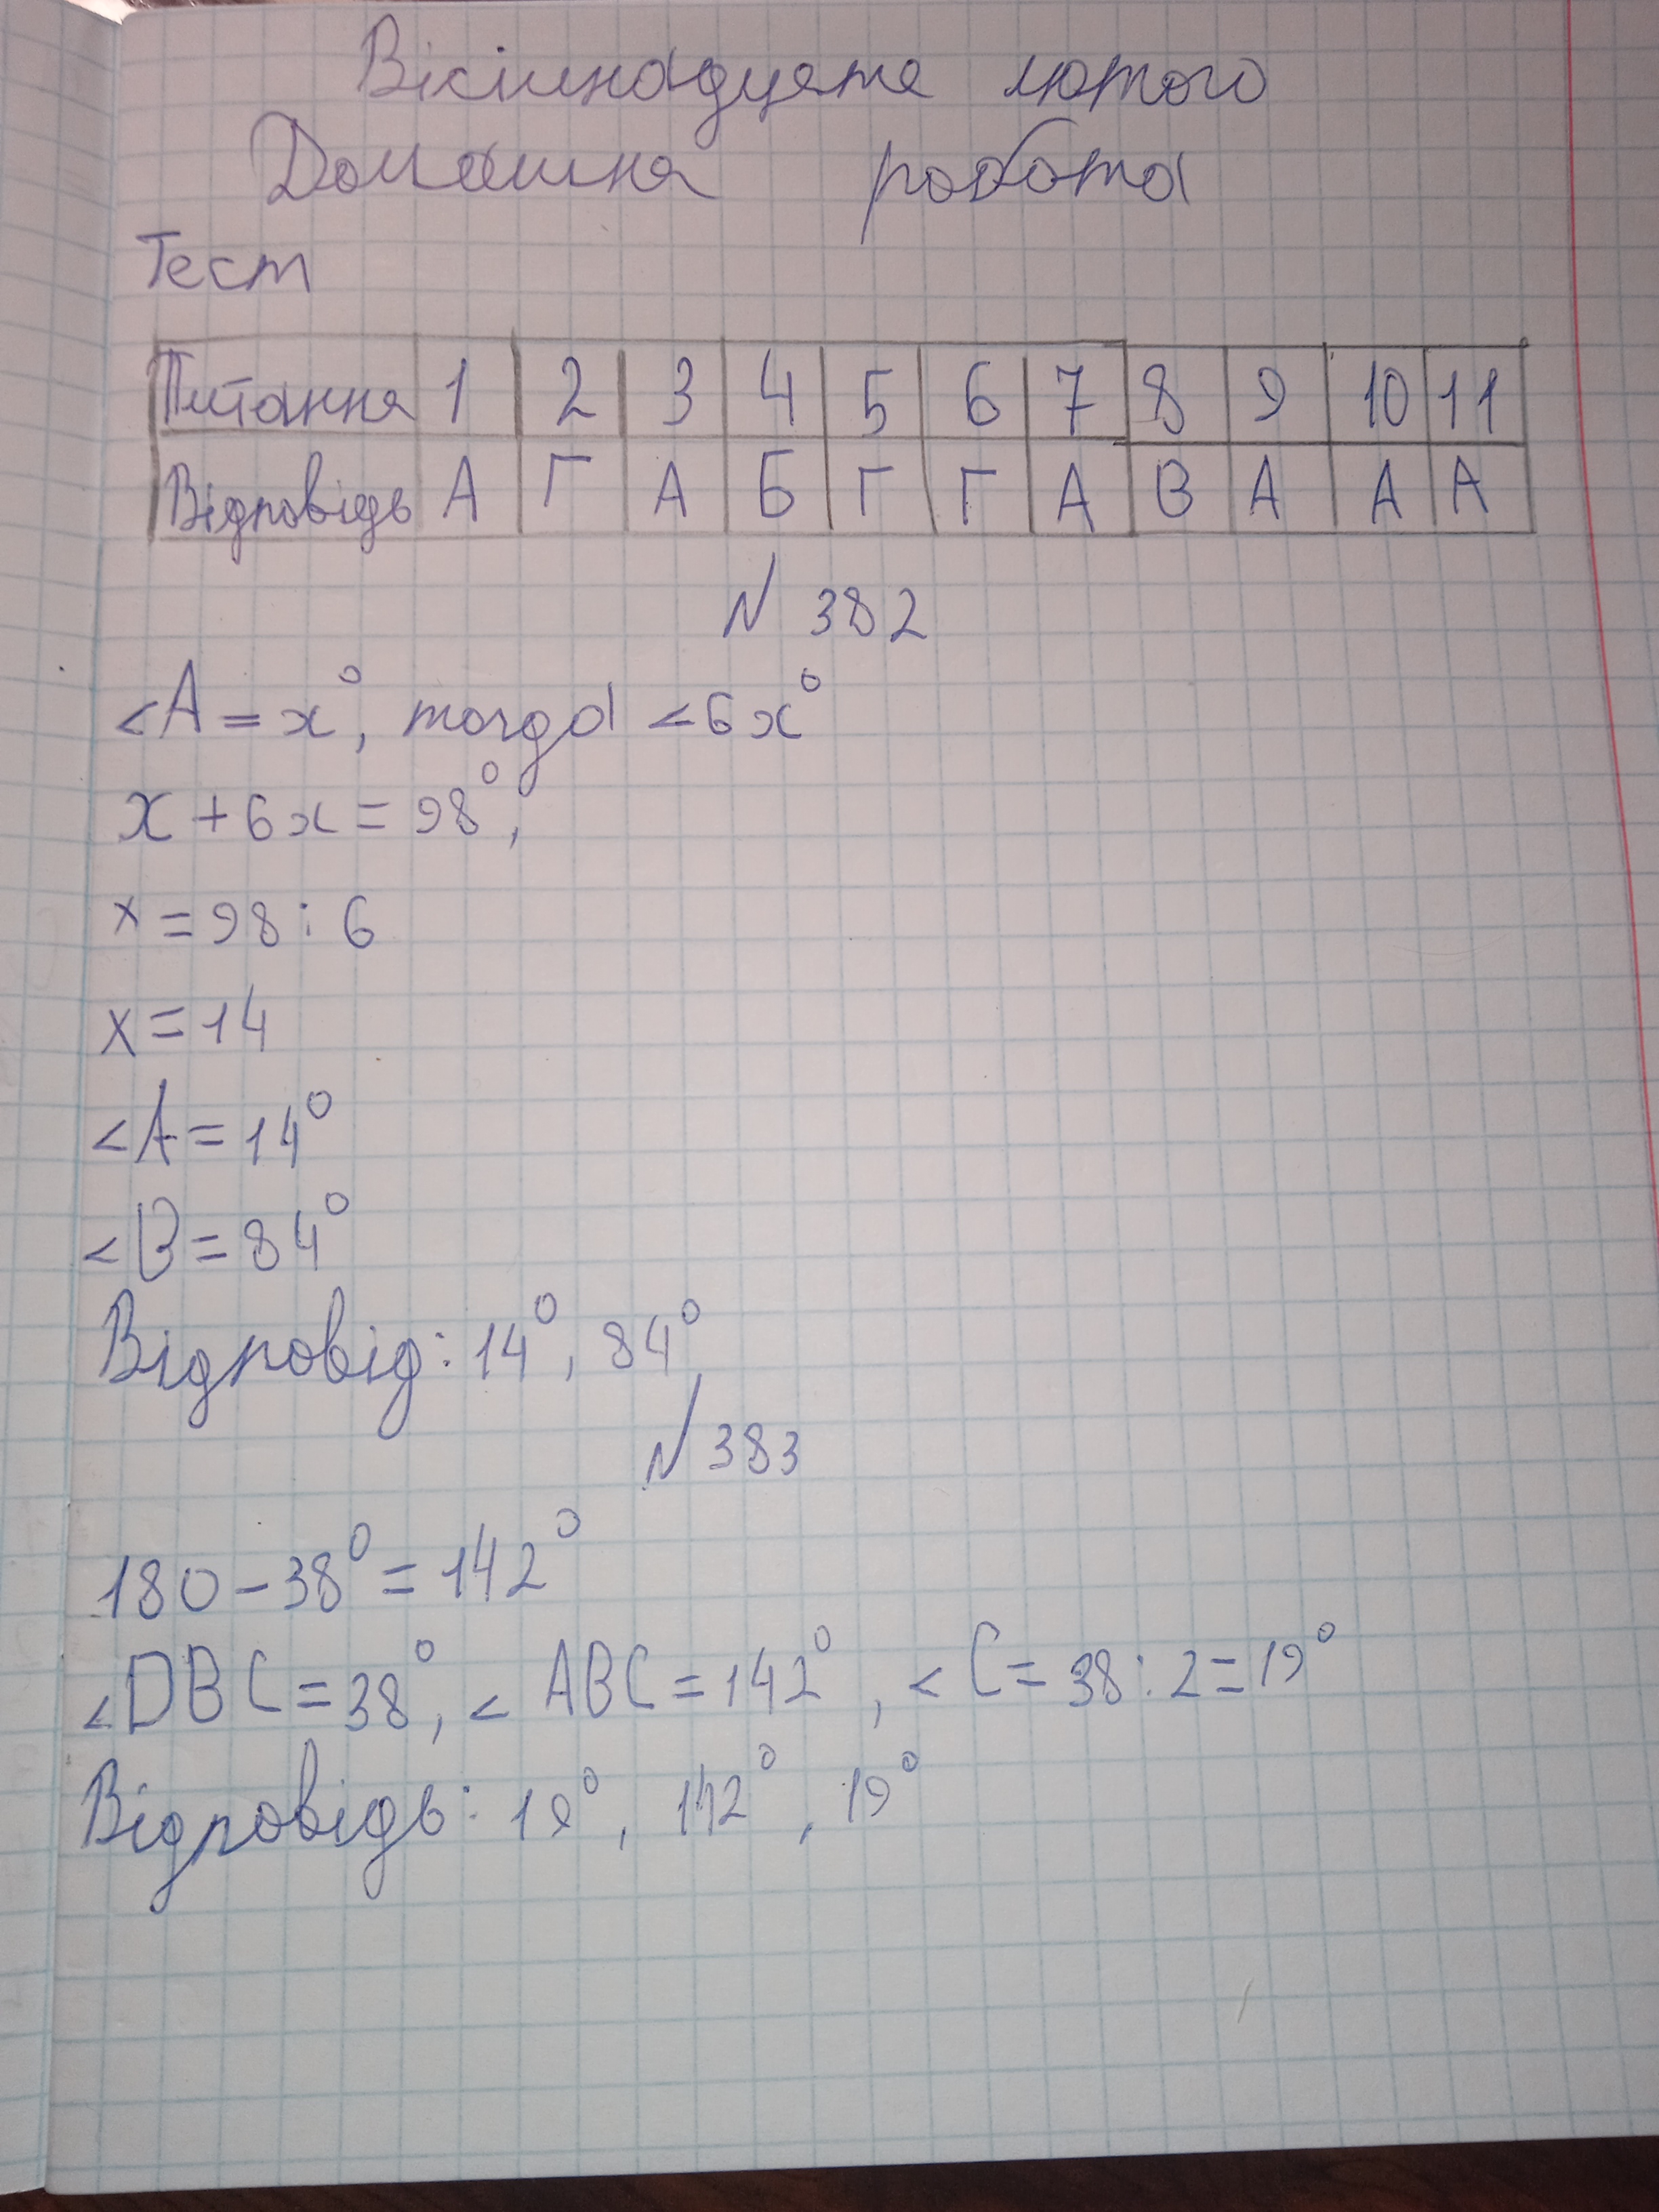 Вісімнадцяте лютого
Домашня робота
Тест
Питання 1 2 3 4 5 6 7 8 9 10 11
Відповідь А Г А Б Г Г А В А А А
№ 382
<A = x°, тогда <6x°
x + 6x = 98°,
x = 98 : 6
x = 14
<A = 14°
<B = 84°
Відповід: 14°, 84°
№ 383
180 - 38° = 142°
<DBC = 38°, < ABC = 142°, < C = 38 : 2 = 19°
Відповідь: 19°, 142°, 19°